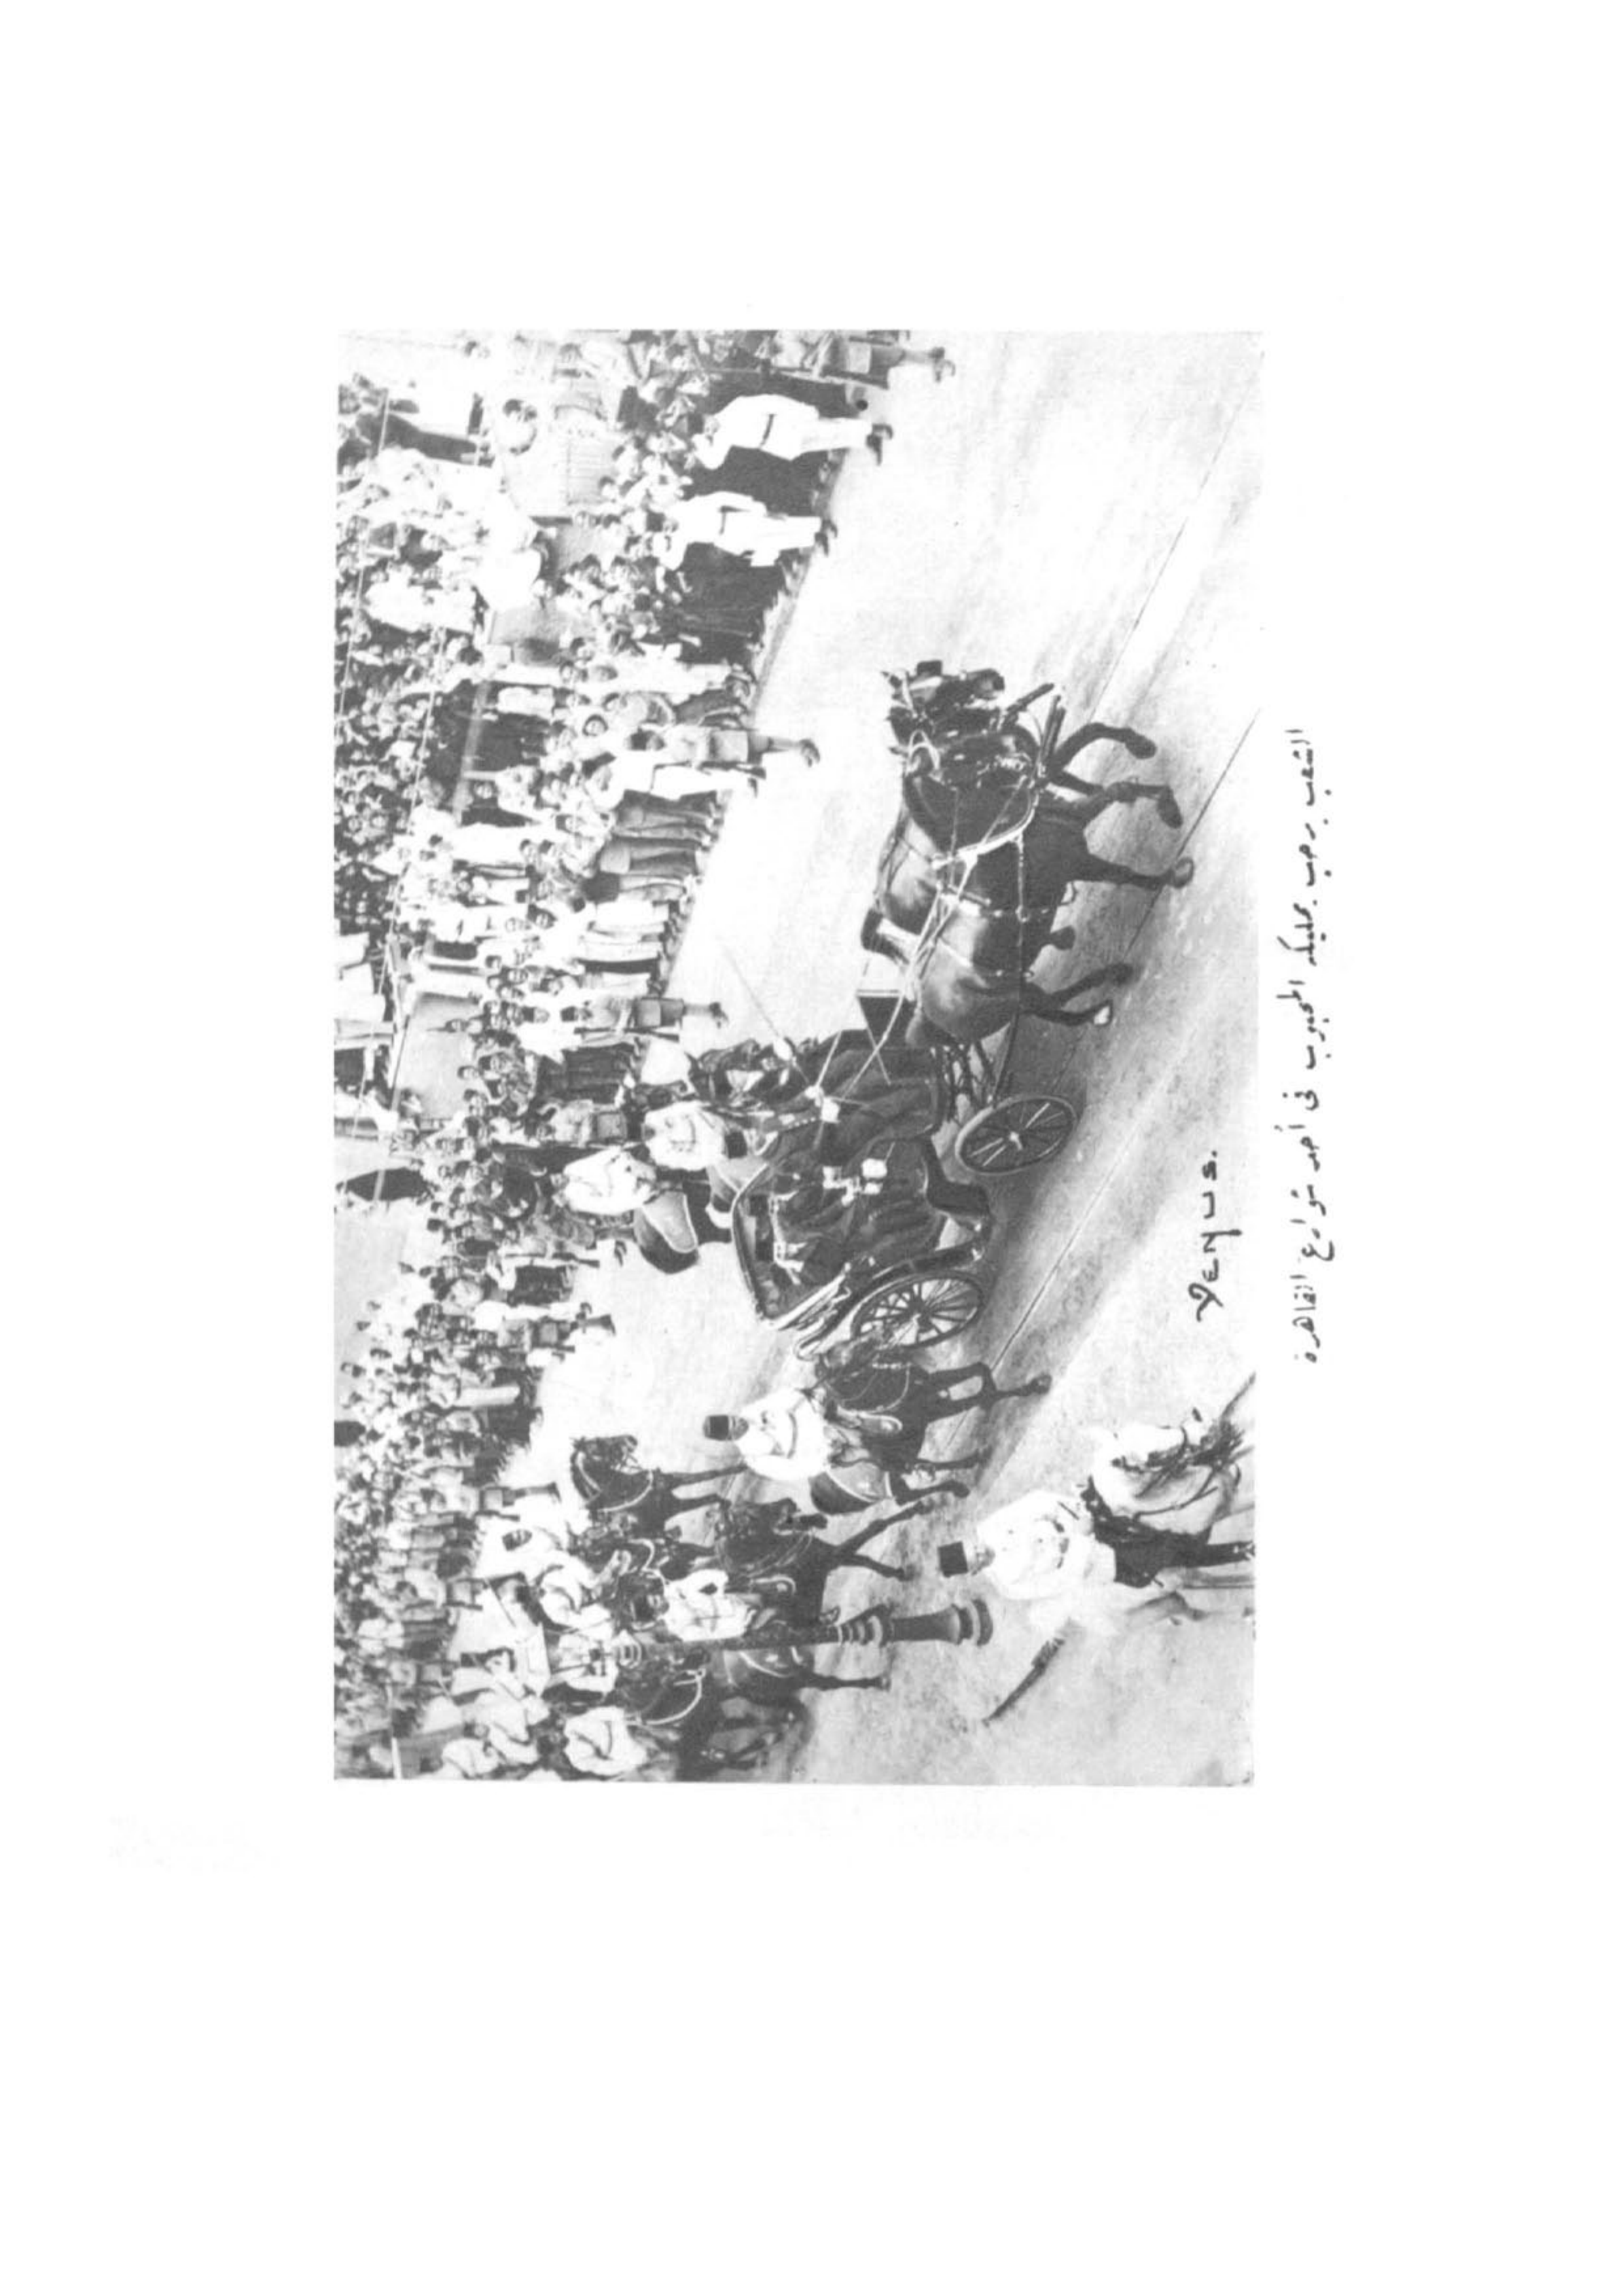 Venus.
الشعب يرحب بمليكه المحبوب فى أحد شوارع القاهرة